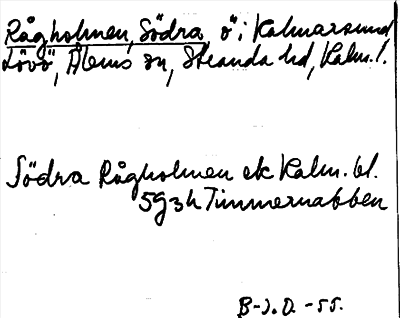 Rågholmen, Södra, ö i Kalmarsund
Lövö, Ålems sn, Stranda hd, Kalm. l.
Södra Rågholmen ek Kalm. bl.
5g3h Timmernabben
B-J.O. -55.